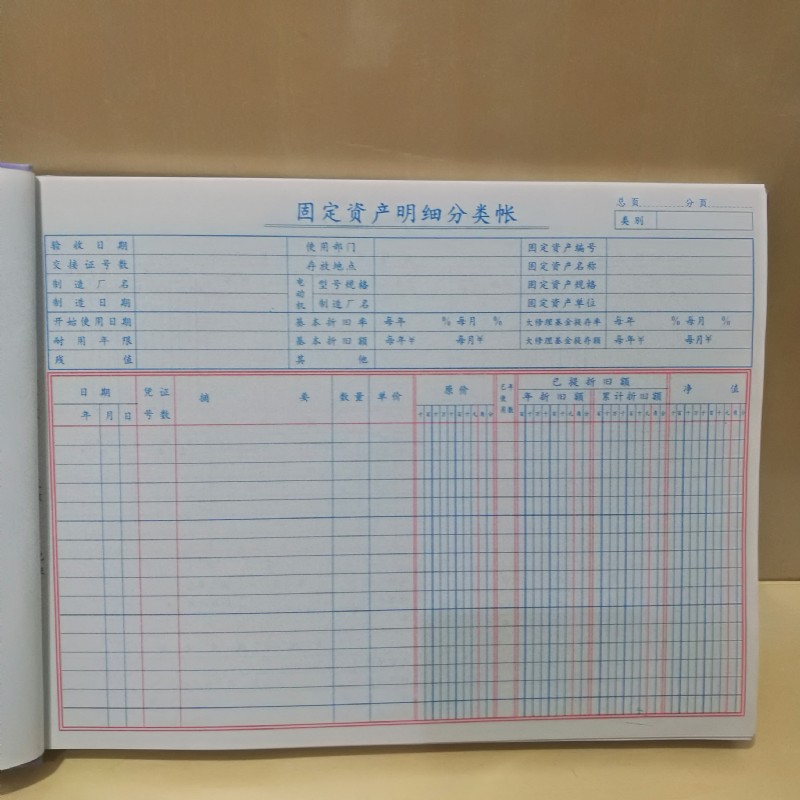 固定资产明细分类帐
总页 分页
类别
验收日期 使用部门 固定资产编号
交接证号数 存放地点 固定资产名称
制造厂名 电动机 型号规格 固定资产规格
制造日期 制造厂名 固定资产单位
开始使用日期 基本折旧率 每年 % 每月 % 大修理基金提存率 每年 % 每月 %
耐用年限 基本折旧额 每年¥ 每月¥ 大修理基金提存额 每年¥ 每月¥
残值 其他
日期 凭证 摘要 数量 单价 原价 已提折旧额 净值
年 月 日 号数 年折旧额 累计折旧额